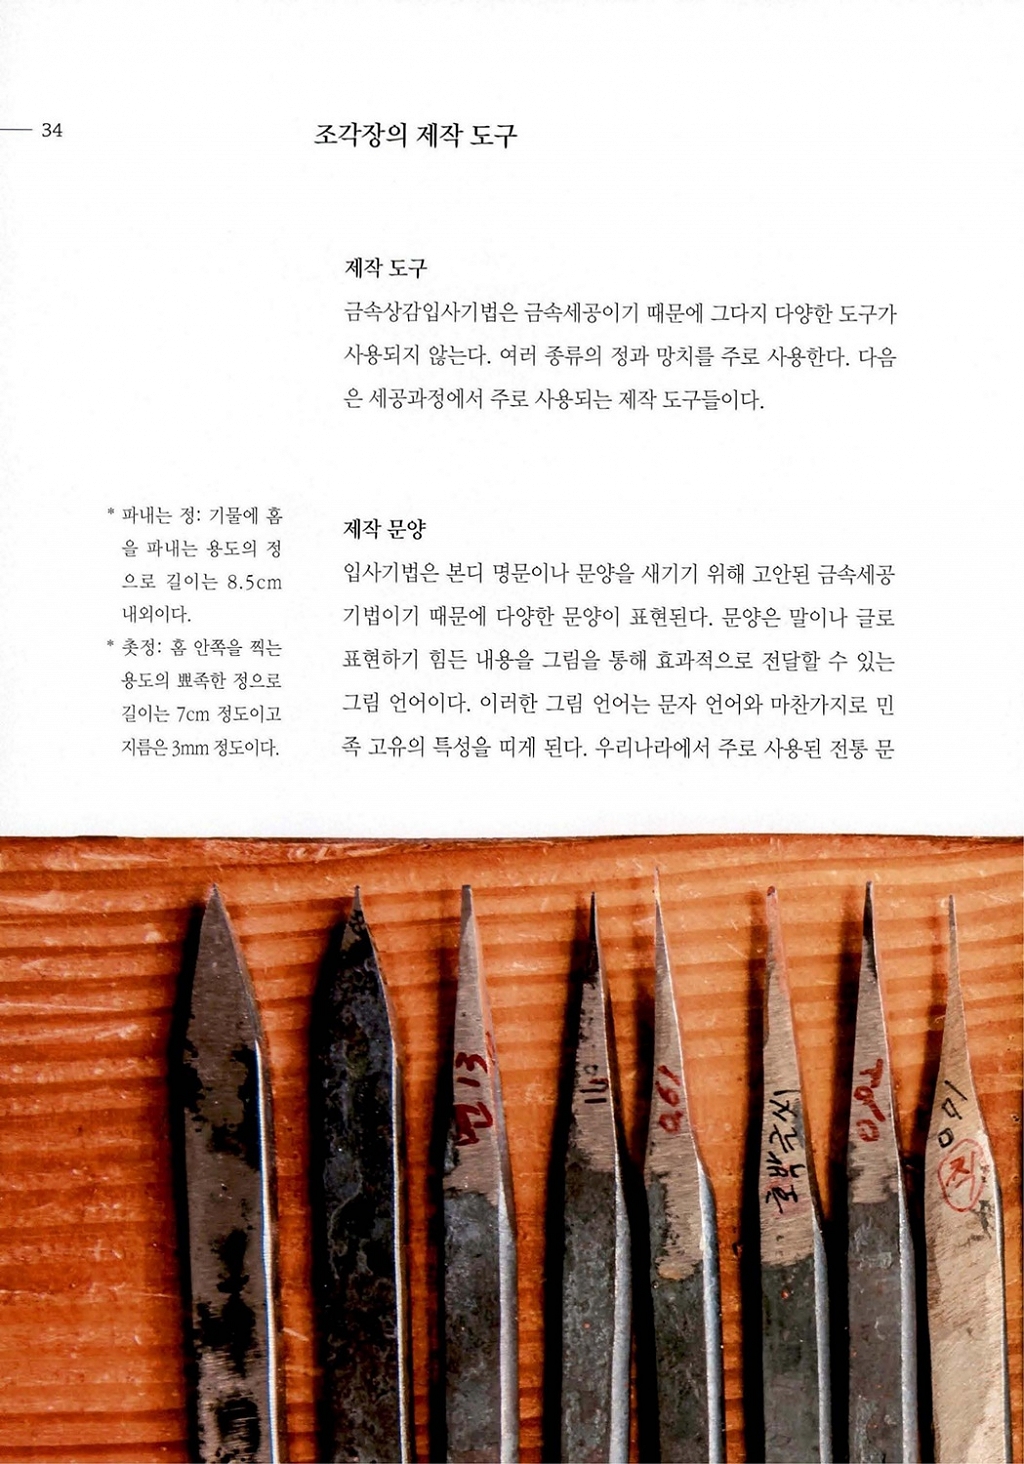 34
조각장의 제작 도구
제작 도구
금속상감입사기법은 금속세공이기 때문에 그다지 다양한 도구가
사용되지 않는다. 여러 종류의 정과 망치를 주로 사용한다. 다음
은 세공과정에서 주로 사용되는 제작 도구들이다.
* 파내는 정: 기물에 홈
을 파내는 용도의 정
으로 길이는 8.5cm
내외이다.
* 촛정: 홈 안쪽을 찍는
용도의 뾰족한 정으로
길이는 7cm 정도이고
지름은 3mm 정도이다.
제작 문양
입사기법은 본디 명문이나 문양을 새기기 위해 고안된 금속세공
기법이기 때문에 다양한 문양이 표현된다. 문양은 말이나 글로
표현하기 힘든 내용을 그림을 통해 효과적으로 전달할 수 있는
그림 언어이다. 이러한 그림 언어는 문자 언어와 마찬가지로 민
족 고유의 특성을 띠게 된다. 우리나라에서 주로 사용된 전통 문